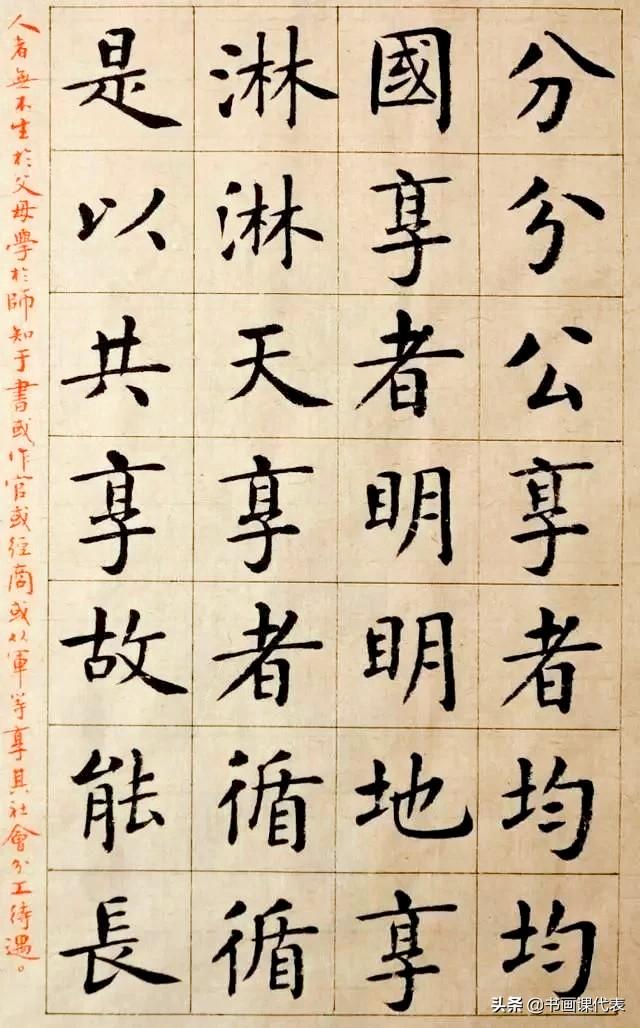 分分公享者均均
國享者明明地享
淋淋天享者循循
是以共享故能長
人者無不生於父母學於師知于書或作官或經商或以軍等享其社會分工待遇。
头条 @书画课代表